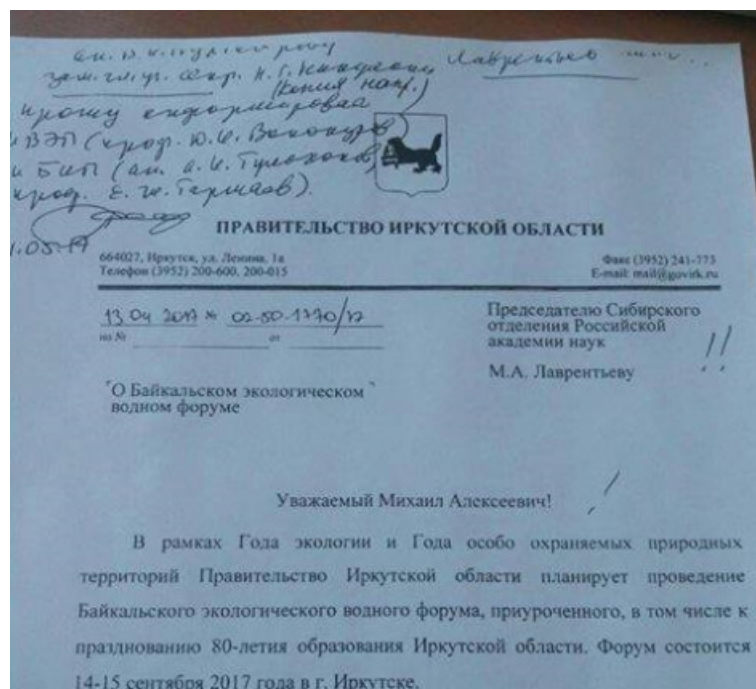 Лаврентьев
(копия напр.)
прошу
ВЭП (проф. Ю.И. Винокуров)
и БИП (ак. А.К. Тулохонов,
проф. Е.Ж. Гармаев).
ПРАВИТЕЛЬСТВО ИРКУТСКОЙ ОБЛАСТИ
664027, Иркутск, ул. Ленина, 1а
Телефон (3952) 200-600, 200-015
Факс (3952) 241-773
E-mail: mail@govirk.ru
13 04 2017 № 02-50-1770/17
на № от
Председателю Сибирского
отделения Российской
академии наук
М.А. Лаврентьеву
!!
"О Байкальском экологическом
водном форуме"
Уважаемый Михаил Алексеевич!
!
В рамках Года экологии и Года особо охраняемых природных
территорий Правительство Иркутской области планирует проведение
Байкальского экологического водного форума, приуроченного, в том числе к
празднованию 80-летия образования Иркутской области. Форум состоится
14-15 сентября 2017 года в г. Иркутске.